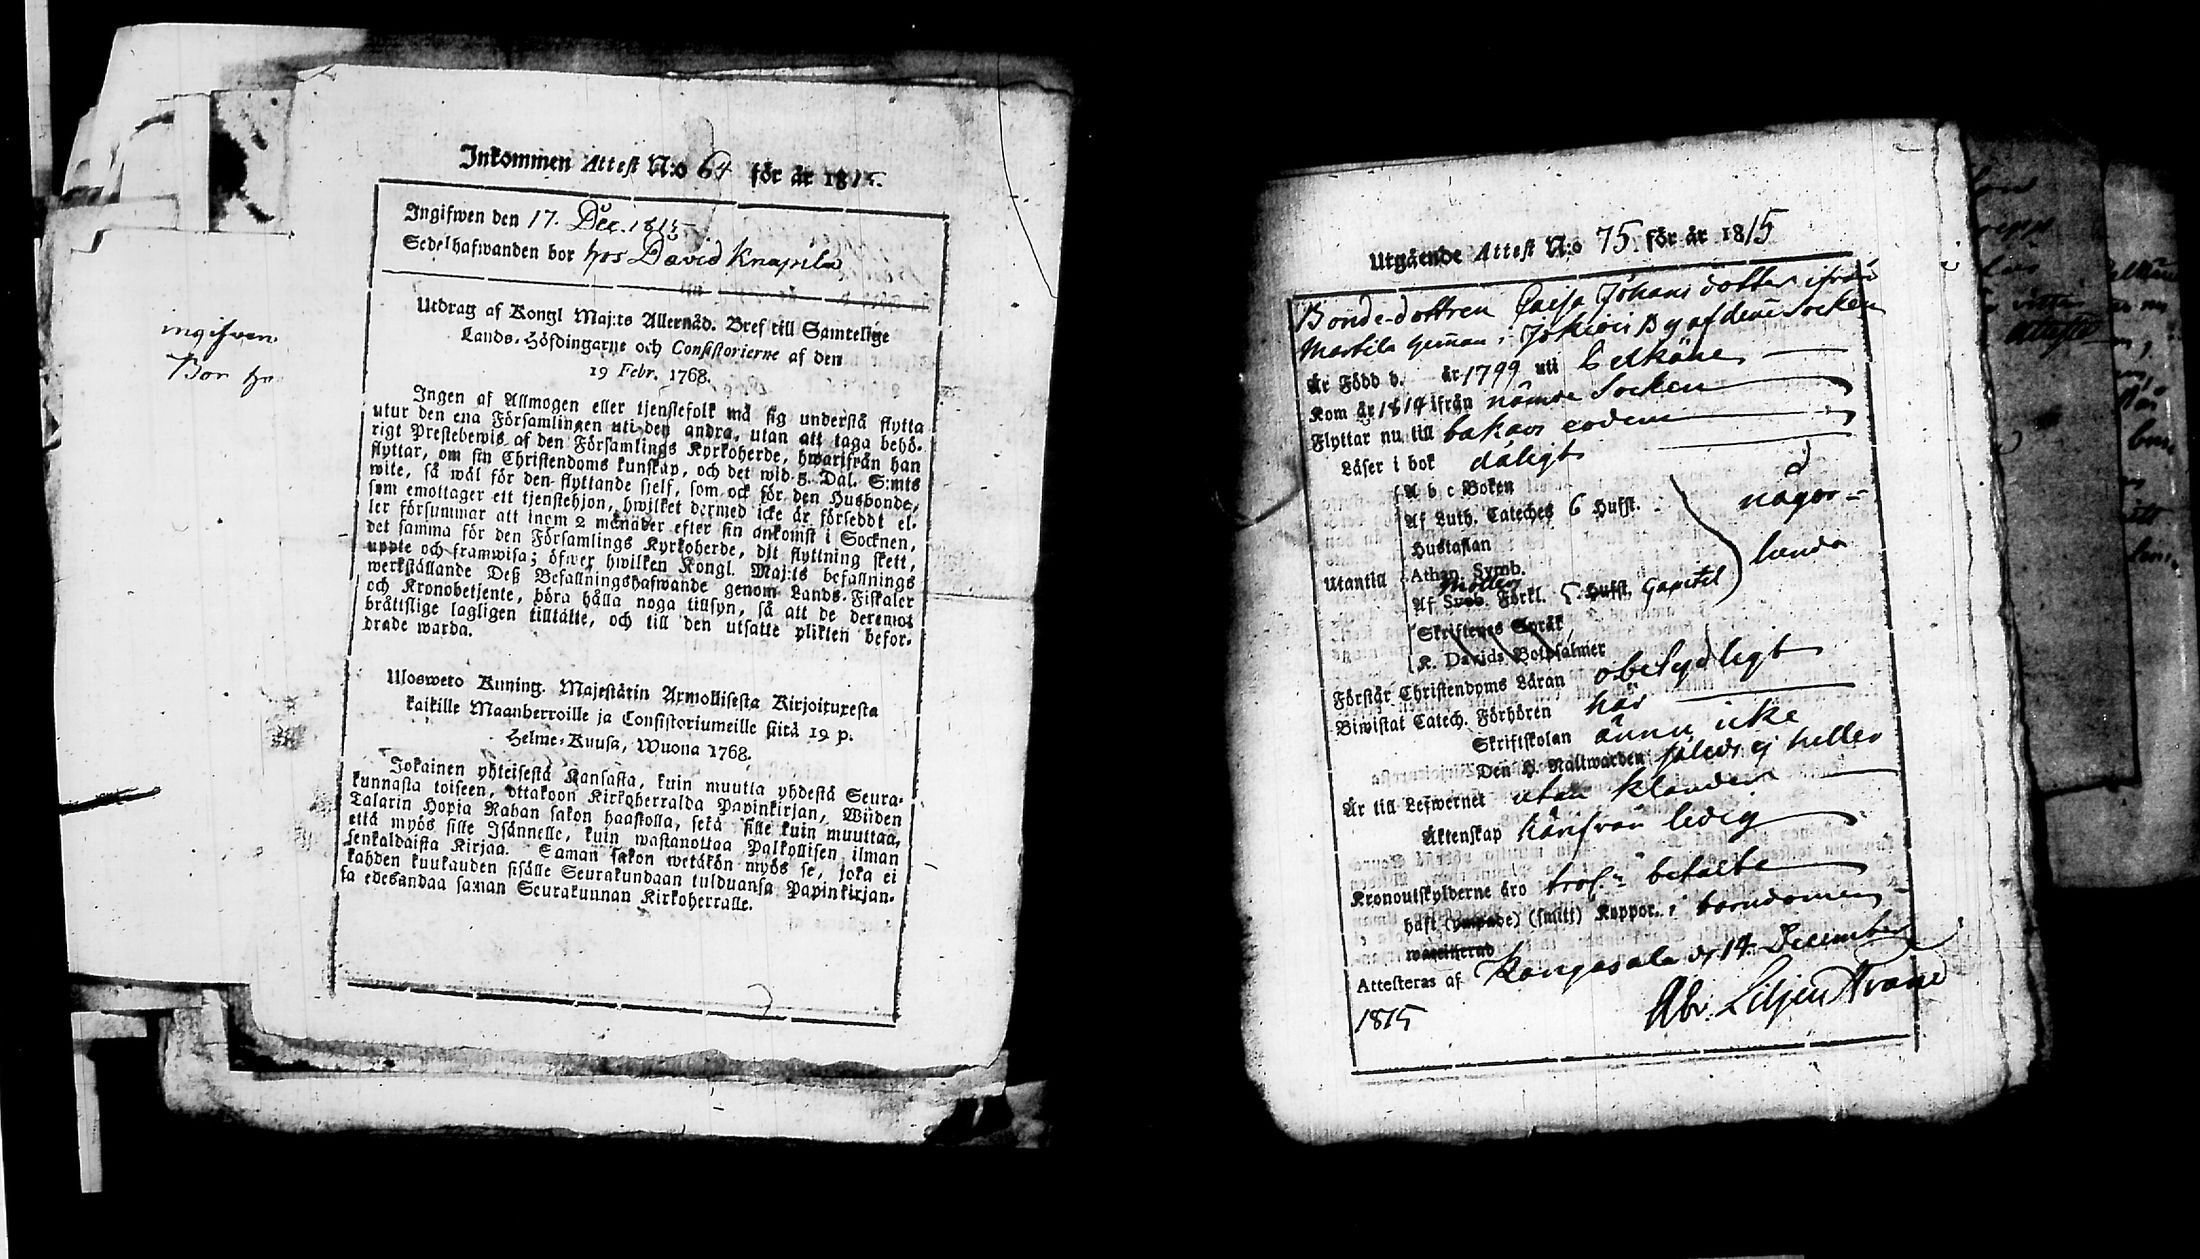 ingifven
Bor
Inkommen Attest N:o 64 för år 1815.
Ingifwen den 17. Dec. 1815
Sedelhafwanden bor hos David Knapila
Utdrag af Kongl Maj:ts Allernåd. Bref till Samtelige
Lands-Höfdingarne och Consistorierne af den
19 Febr. 1768.
Ingen af Allmogen eller tjenstefolk må sig understå flytta
utur den ena Församlingen uti den andra, utan att taga behö-
rigt Prestebewis af den Församlings Kyrkoherde, hwarifrån han
flyttar, om sin Christendoms kunskap, och det wid 5. Dal. S:mts
wite, så wäl för den flyttande sjelf, som ock för den Husbonde,
som emottager ett tjenstehjon, hwilket dermed icke är försedt el-
ler försummar att inom 2 månader efter sin ankomst i Socknen,
det samma för den Församlings Kyrkoherde, dit flyttning skett,
uppte och framwisa; öfwer hwilken Kongl. Maj:ts befallnings
werkställande Deß Befallningshafwande genom Lands-Fiskaler
och Kronobetjente, böra hålla noga tillsyn, så att de deremot
bråttslige lagligen tilltalte, och till den utsatte plikten befor-
drade warda.
Ulosweto Kuning. Majestätin Armollisesta Kirjoituxesta
kaikille Maanherroille ja Consistoriumeille siitä 19 p.
Helme-Kuusa, Wuona 1768.
Jokainen yhteisestä Kansasta, kuin muutta yhdestä Seura-
kunnasta toiseen, ottakoon Kirkoherralda Papinkirjan, Wiiden
Talarin Hopia Rahan sakon haastolla, sekä sille kuin muuttaa,
että myös sille Isännelle, kuin wastanottaa Palkollisen ilman
senkaldaista Kirjaa. Saman sakon wetäkön myös se, joka ei
kahden kuukauden sisälle Seurakundaan tulduansa Papinkirjan-
sa edesandaa saman Seurakunnan Kirkoherralle.
Utgående Attest N:o 75 för år 1815
Bonde-dottren Caisa Johans dotter ifrån
Martila i By af denne Socken
Är Född d. år 1799 uti Lelkäne
Kom år 1814 ifrån nämde Socken
Flyttar nu till eodem
Läser i bok dåligt
A b c Boken
Af Luth. Cateches 6 Hufst. någor-
Hustaflan
Utantill Athan. Symb. lunda
Af Sveb. Förkl. Hufst. Capitel
Skriftenes Språk
K. Davids Botpsalmer
Förstår Christendoms Läran obetydligt
Biwistat Catech. Förhören här
Skriftskolan ännu icke
Den H. Nattwarden således ej heller
Är till Lefwernet utan klander
Äktenskap härifrån ledig
Kronoutskylderne äro betalte
haft (ympade) (smitt) Koppor. i barndomen
waccinerad
Attesteras af Kangasala d. 14 December
1815 Abr. Liljenstrand